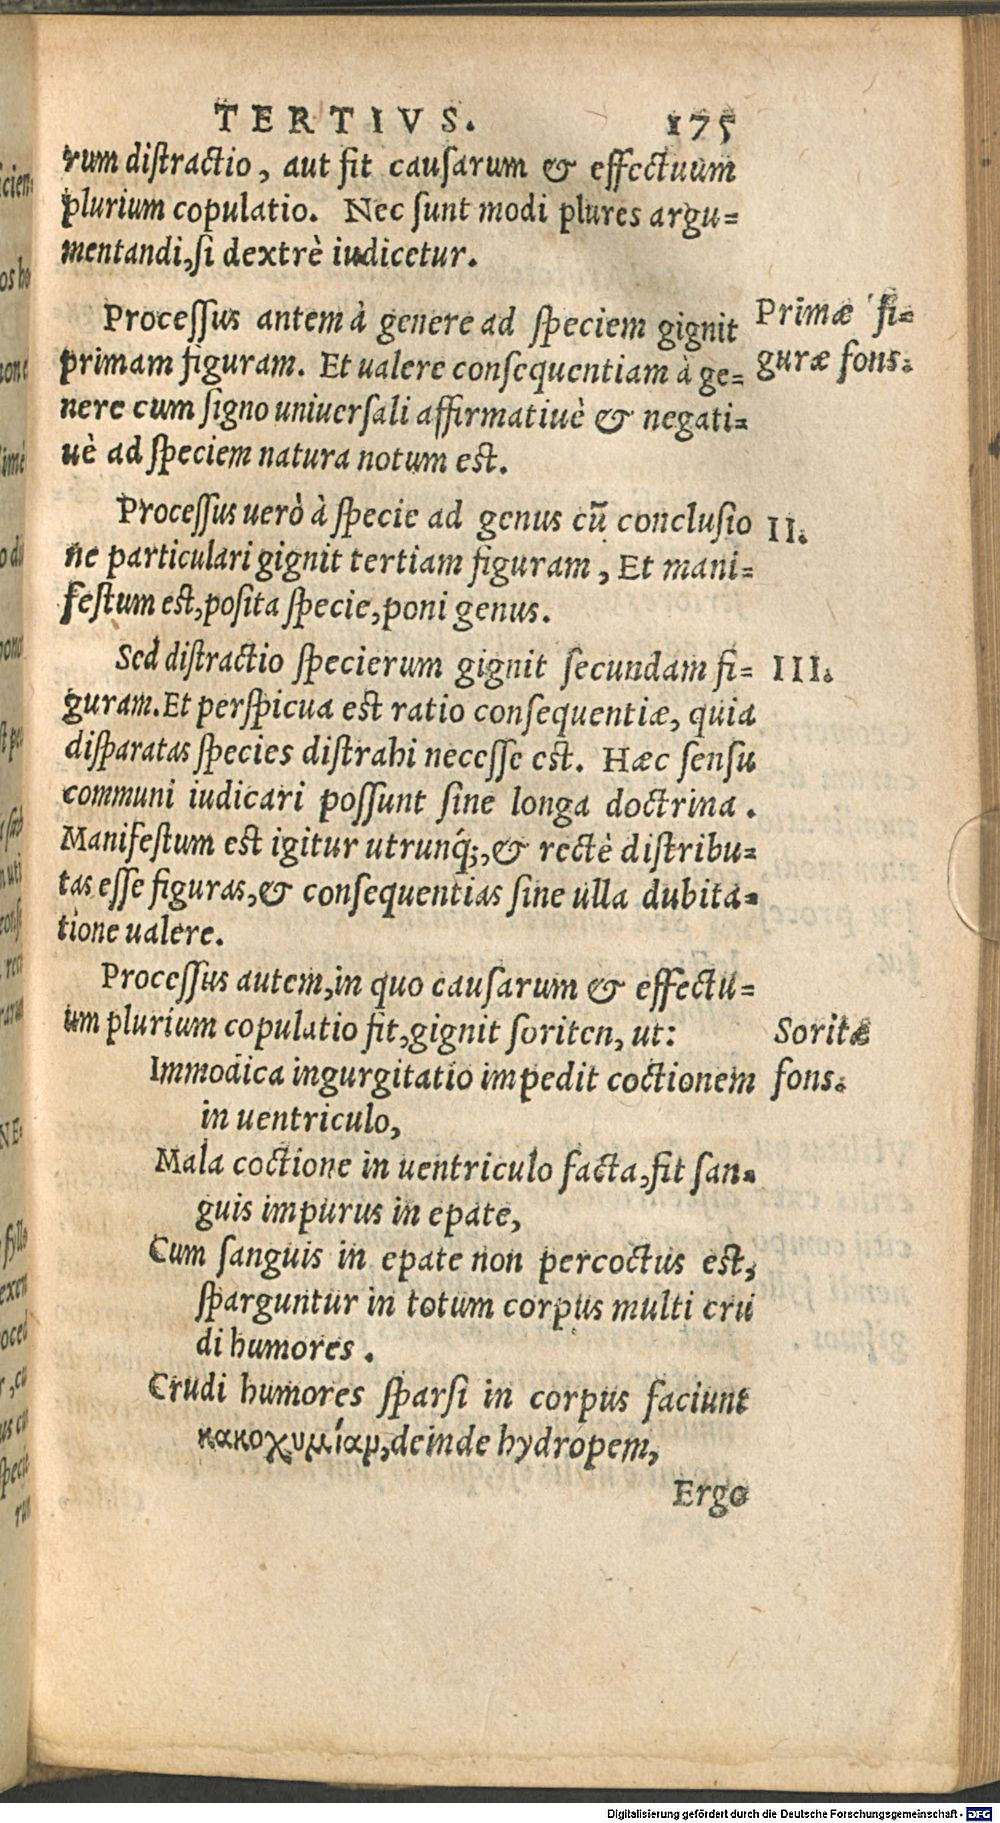 TERTIVS. 175
rum distractio, aut fit causarum & effectuum
plurium copulatio. Nec sunt modi plures argu=
mentandi, si dextrè iudicetur.
Processus antem à genere ad speciem gignit
Primæ fi=
primam figuram. Et ualere consequentiam à ge=
guræ fons.
nere cum signo uniuersali affirmatiuè & negati=
uè ad speciem natura notum est.
Processus uerò à specie ad genus cū conclusio
II.
ne particulari gignit tertiam figuram, Et mani=
festum est, posita specie, poni genus.
Sed distractio specierum gignit secundam fi=
III.
guram. Et perspicua est ratio consequentiæ, quia
disparatas species distrahi necesse est. Hæc sensu
communi iudicari possunt sine longa doctrina.
Manifestum est igitur utrunq́;, & rectè distribu=
tas esse figuras, & consequentias sine ulla dubita=
tione ualere.
Processus autem, in quo causarum & effectu=
um plurium copulatio fit, gignit soriten, ut:
Soritæ
Immodica ingurgitatio impedit coctionem
fons.
in uentriculo,
Mala coctione in uentriculo facta, fit san=
guis impurus in epate,
Cum sanguis in epate non percoctus est,
sparguntur in totum corpus multi cru
di humores.
Crudi humores sparsi in corpus faciunt
κακοχυμίαμ, deinde hydrópem,
Ergo
Digitalisierung gefördert durch die Deutsche Forschungsgemeinschaft - DFG